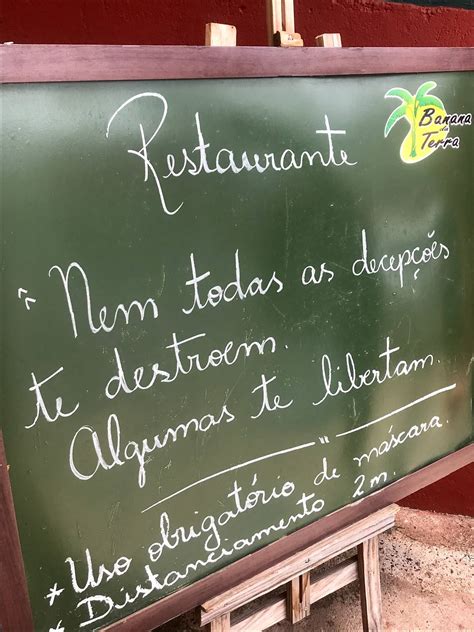 Restaurante
Banana
da
Terra
"Nem todas as decepções
te destroem.
Algumas te libertam.
"
* Uso obrigatório de máscara.
* Distanciamento 2m.